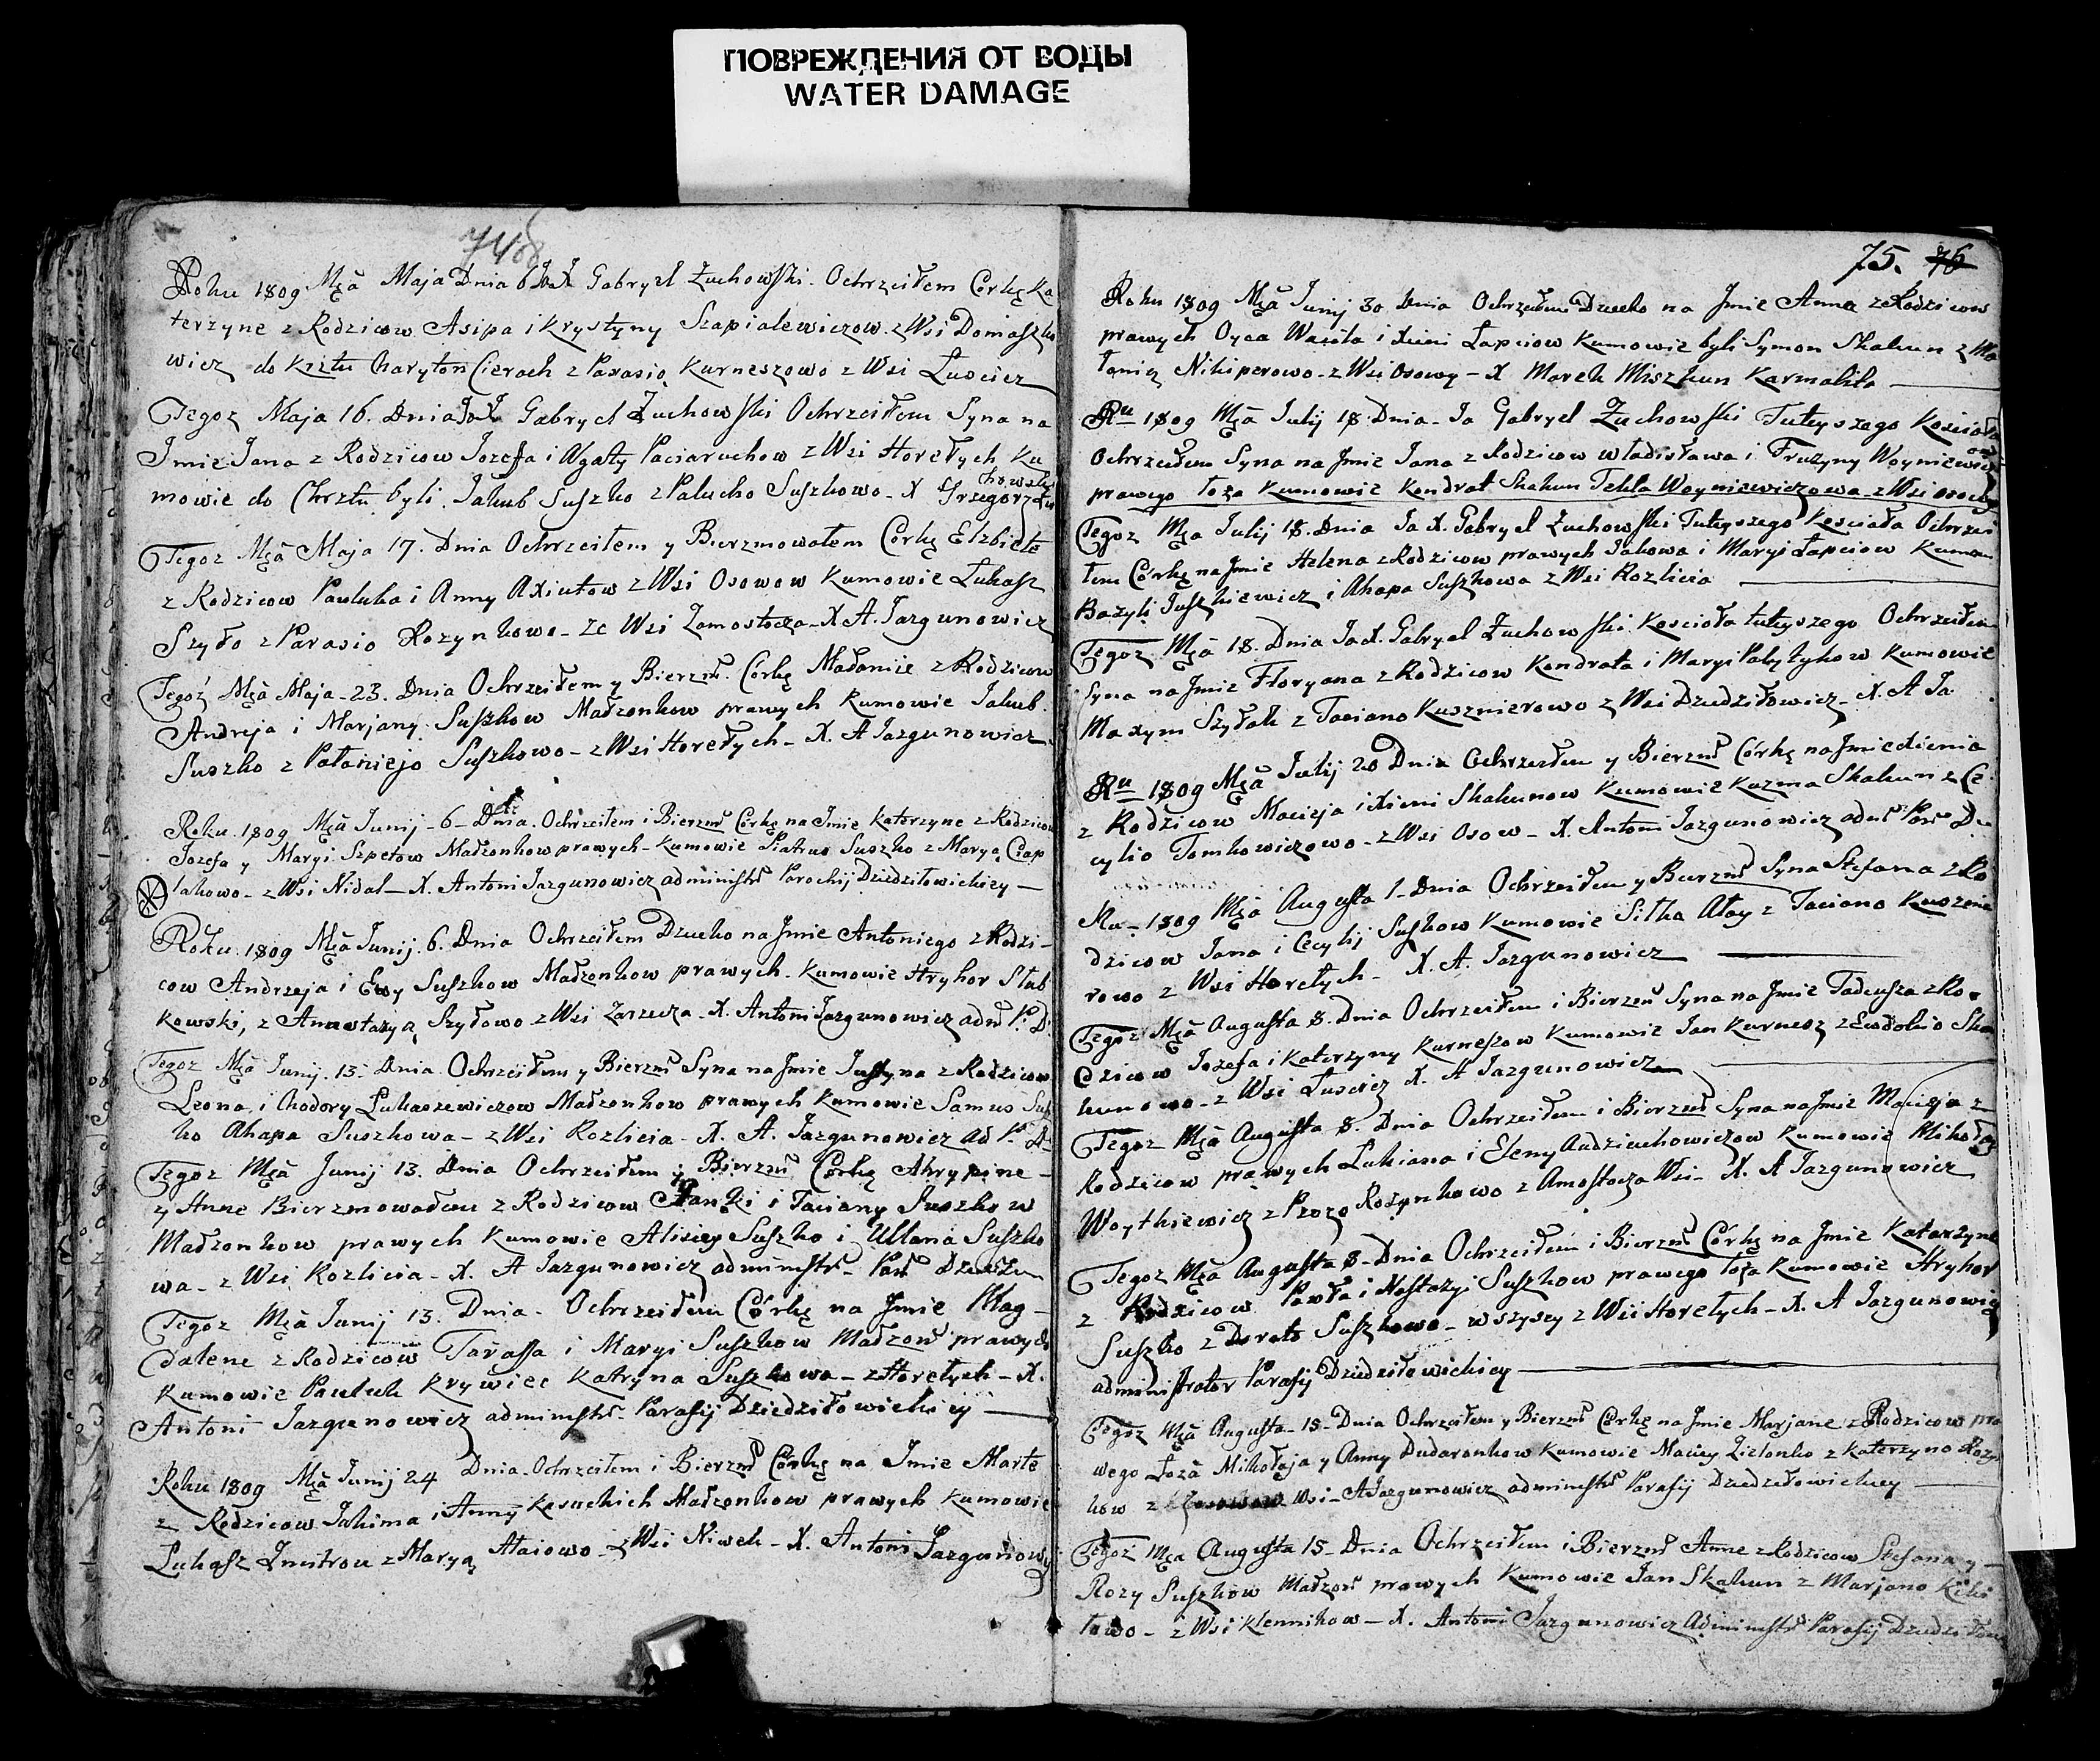 ПОВРЕЖДЕНИЯ ОТ ВОДЫ
WATER DAMAGE
74об
Roku 1809 Mca Maja Dnia 6 Ja X Gabryel Żuchowski Ochrzciłem Corkę Ka
terzyne z Rodzicow Asipa i Krystyny Szapialewiczow z Wsi Domaszko
wicz do Krztu Charyton Cierach z Parasią Kurneszowo z Wsi Luscicz
Tegoz Maja 16. Dnia Ja X Gabryel Żuchowski Ochrzciłem Syna na
Imie Jana z Rodzicow Jozefa i Agaty Paciaruchow z Wsi Horełych Ku
mowie do Chrztu byli Jakub Suszko z Palucho Suszkowo - X Grzegorz Żu
chowski
Tegoz Mca Maja 17. Dnia Ochrzciłem y Bierzmowałem Corkę Elzbiete
z Rodzicow Pauluka i Anny Axiutow z Wsi Osowow Kumowie Łukasz
Szyło z Parasio Rozynkowo - ze Wsi Zamostocza - X A. Jazgunowicz
Tegoż Mca Maja - 23. Dnia Ochrzciłem y Bierzm Corkę Małanie z Rodzicow
Andreja i Marjany Suszkow Małzonkow prawych Kumowie Jakub
Suszko z Połaniejo Suszkowo - z Wsi Horełych - X. A Jazgunowicz
Roku 1809 Mca Junij - 6 - Dnia. Ochrzciłem i Bierzm Corkę na Imie Katerzyne z Rodzicow
Jozefa y Maryi Szpetow Małzonkow prawych - Kumowie Piatrus Suszko z Maryą Czap
lakowo - z Wsi Nidal - X. Antoni Jazgunowicz administr Parochij Dziedziłowickiey
Roku 1809 Mca Junij. 6. Dnia Ochrzciłem Dziecko na Jmie Antoniego z Rodzi-
cow Andrzeja i Ewy Suszkow Małzonkow prawych - Kumowie Hryhor Slab
kowski, z Anastazyą Szyłowo z Wsi Zarzecza - X. Antoni Jazgunowicz adm P. D.
Tegoz Mca Junij. 13. Dnia Ochrzciłem y Bierzm Syna na Jmie Justyna z Rodzicow
Leona i Chodory Łukaszewiczow Małzonkow prawych Kumowie Samus Susz
ko Ahapa Suszkowa - z Wsi Rozlicia - X. A. Jazgunowicz Ad P. D.
Tegoz Mca Junij 13. Dnia Ochrzciłem y Bierzm Corkę Ahrypine -
y Anne Bierzmowałem z Rodzicow i Taciany Suszkow
Małzonkow prawych Kumowie Alisiey Suszko i Ullana Suszko
wa - z Wsi Rozlicia - X. A Jazgunowicz administr - Par
Tegoz Mca Junij 13. Dnia - Ochrzciłem Corkę na Jmie Mag -
dalene z Rodzicow Tarassa i Maryi Suszkow Małzon prawych
Kumowie Pauluk Krywiec Katryna Suszkowa - z Horełych - X.
Antoni Jazgunowicz administr - Parafij Dziedziłowickiey
Roku 1809 Mca Junij 24 Dnia. Ochrzciłem i Bierzm Corkę na Imie Marte
z Rodzicow Jakima i Anny Kasuckich Małzonkow prawych Kumowie
Łukasz Zmitrou z Maryą Ataiowo - z Wsi Niwek - X. Antoni Jazgunowicz
75. 76
Roku 1809 Mca Junij 30 Dnia Ochrzciłem Dziecko na Jmie Anna z Rodzicow
prawych Oyca Wasila i Xieni Łapciow Kumowie byli Symon Skakun z Ma
łanią Nikiperowo - z Wsi Osowy - X Marek Miszkun Karmalita
Ru 1809 Mca Julij 18 Dnia - Ja Gabryel Żuchowski Tuteyszego Kosciola
Ochrzciłem Syna na Jmie Jana z Rodzicow Władisława i Fruzyny Woyniewicz
ow
prawego łoza Kumowie Kondrat Skakun Tekla Woyniewiczowa - z Wsi Osowy
Tegoz Mca Julij 18. Dnia Ja X. Gabryel Żuchowski Tuteyszego Kosciała Ochrzci
łem Córkę na Jmie Helena z Rodzicow prawych Jakowa i Maryi Łapciow Kumow
Bazyli Juszkiewicz i Ahapa Suszkowa z Wsi Rozlicia
Tegoz Mca 18. Dnia Ja X. Gabryel Żuchowski Kosciola tuteyszego Ochrzciłem
Syna na Jmie Floryana z Rodzicow Kondrata i Maryi Kumowie
Maxym Szyłak z Taciano Kusznierowo z Wsi Dziedziłowicz - X. A Ja
Ru 1809 Mca Julij 20 Dnia Ochrzciłem y Bierzm Córkę na Jmie Xienia
z Rodzicow Macieja i Xieni Skakunow Kumowie Kuzma Skakun z Ce
cylio Tomkowiczowo - z Wsi Osow - X. Antoni Jazgunowicz adm Par Dz
Ru - 1809 Mca Augusta 1 - Dnia Ochrzciłem y Bierzm Syna Stefana z Ro
dzicow Jana i Cecylij Suszkow Kumowie Sitka Ałay z Taciano Kuszne
rowo z Wsi Horełych - X. A. Jazgunowicz
Tegoz Mca Augusta 8. Dnia Ochrzciłem i Bierzm Syna na Jmie Tadeusza z Ro
dzicow Jozefa i Katerzyny Kurneszow Kumowie Jan Kurnesz z Ewdokio Ska
kunowo - z Wsi Luscicz X. A Jazgunowicz
Tegoz Mca Augusta 8. Dnia Ochrzciłem i Bierzm Syna na Jmie Macieja z
Rodzicow prawych Lukiana i Eleny Audziuchowiczow Kumowie Mikołay
Woytkiewicz z Rozynkowo z Amostocza Wsi - X. A Jazgunowicz
Tegoz Mca Augusta 8 - Dnia Ochrzciłem i Bierzm Córkę na Jmie Katarzyne
z Rodzicow Pawła i Nastazyi Suszkow prawego łoża Kumowie Hryhor
Suszko z Doroto Suszkowo - wszyscy z Wsi Horełych - X. A Jazgunowicz
administrator Parafij Dziedziłowickiey
Tegoz Mca Augusta - 15 - Dnia Ochrzciłem y Bierzm Corkę na Jmie Marjane z Rodzicow pra
wego Łoza Mikołaja y Anny Dudaronkow Kumowie Maciey Zielonko z Katerzyno Rozyn
kow z Wsi - A Jazgunowicz administr Parafij Dziedziłowickiey
Tegoż Mca Augusta 15 - Dnia Ochrzciłem i Bierzm Anne z Rodzicow Stefana y -
Rozy Suszkow Małzon prawych Kumowie Jan Skakun z Marjano Kiki
łowo - z Wsi Klennikow - X. Antoni Jazgunowicz Administr Parafij Dziedziłow